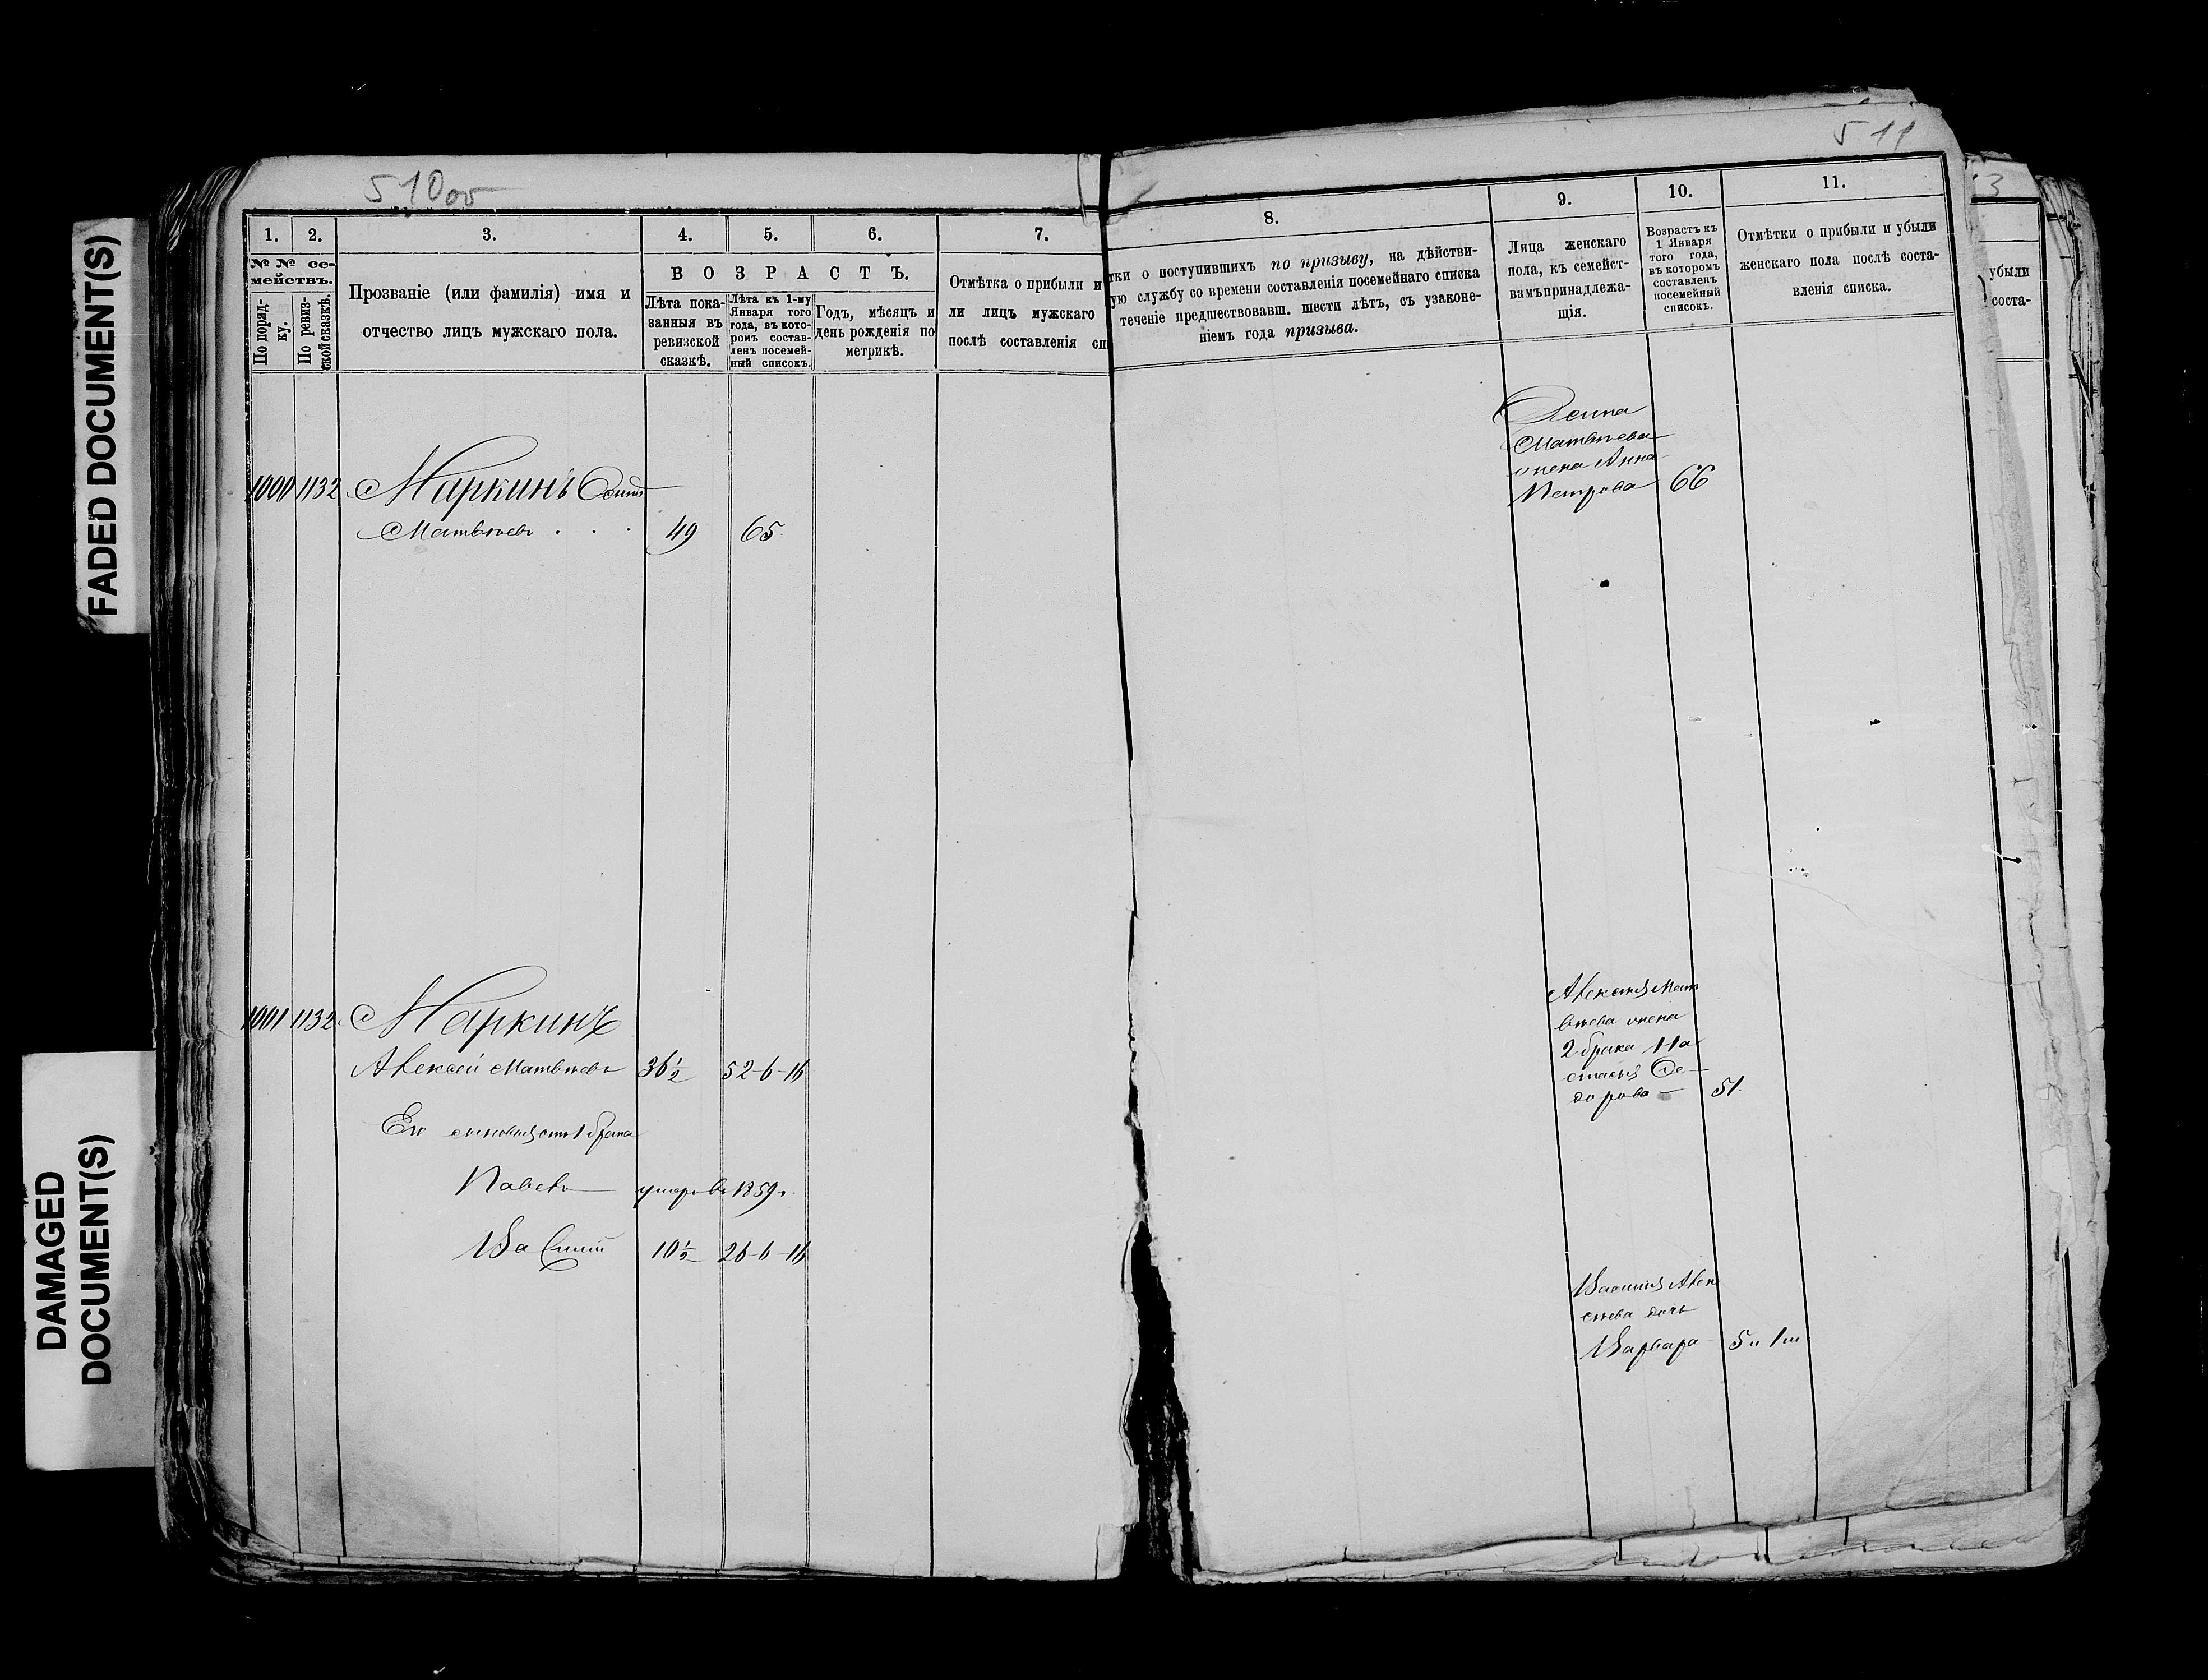 FADED DOCUMENT(S)
DAMAGED
DOCUMENT(S)
510об
1.
2.
3.
4.
5.
6.
7.
№ № се-
мействъ.
По поряд-
ку.
По ревиз-
ской сказкѣ.
Прозваніе (или фамилія) имя и
отчество лицъ мужскаго пола.
ВОЗРАСТЪ.
Лѣта пока-
занныя въ
ревизской
сказкѣ.
Лѣта къ 1-му
Января того
года, въ кото-
ромъ состав-
ленъ посемей-
ный списокъ.
Годъ, мѣсяцъ и
день рожденія по
метрикѣ.
Отмѣтка о прибыли и
ли лицъ мужскаго
послѣ составленія сп
1000 1132 Маркинъ Осипъ
Матвѣевъ . . . 49 65.
1001 1132 Маркинъ
Алексѣй Матвѣевъ 36½ 52-6-16
Его сыновья отъ 1 брака
Павелъ умеръ въ 1859г.
Василій 10½ 26-6-16
511
8.
9.
10.
11.
тки о поступившихъ по призыву, на дѣйстви-
ую службу со времени составленія посемейнаго списка
теченіе предшествовавш. шести лѣтъ, съ узаконе-
ніемъ года призыва.
Лица женскаго
пола, къ семейст-
вамъ принадлежа-
щія.
Возрастъ къ
1 Января
того года,
въ которомъ
составленъ
посемейный
списокъ.
Отмѣтки о прибыли и убыли
женскаго пола послѣ соста-
вленія списка.
Осипа
Матвѣева
жена Анна
Петрова 66
Алексѣя Мат
вѣева жена
2 брака На
стасья Ѳе-
дорова 51.
Василія Алек
сѣева дочь
Варвара 5 и 1 м
3
убыли
соста-